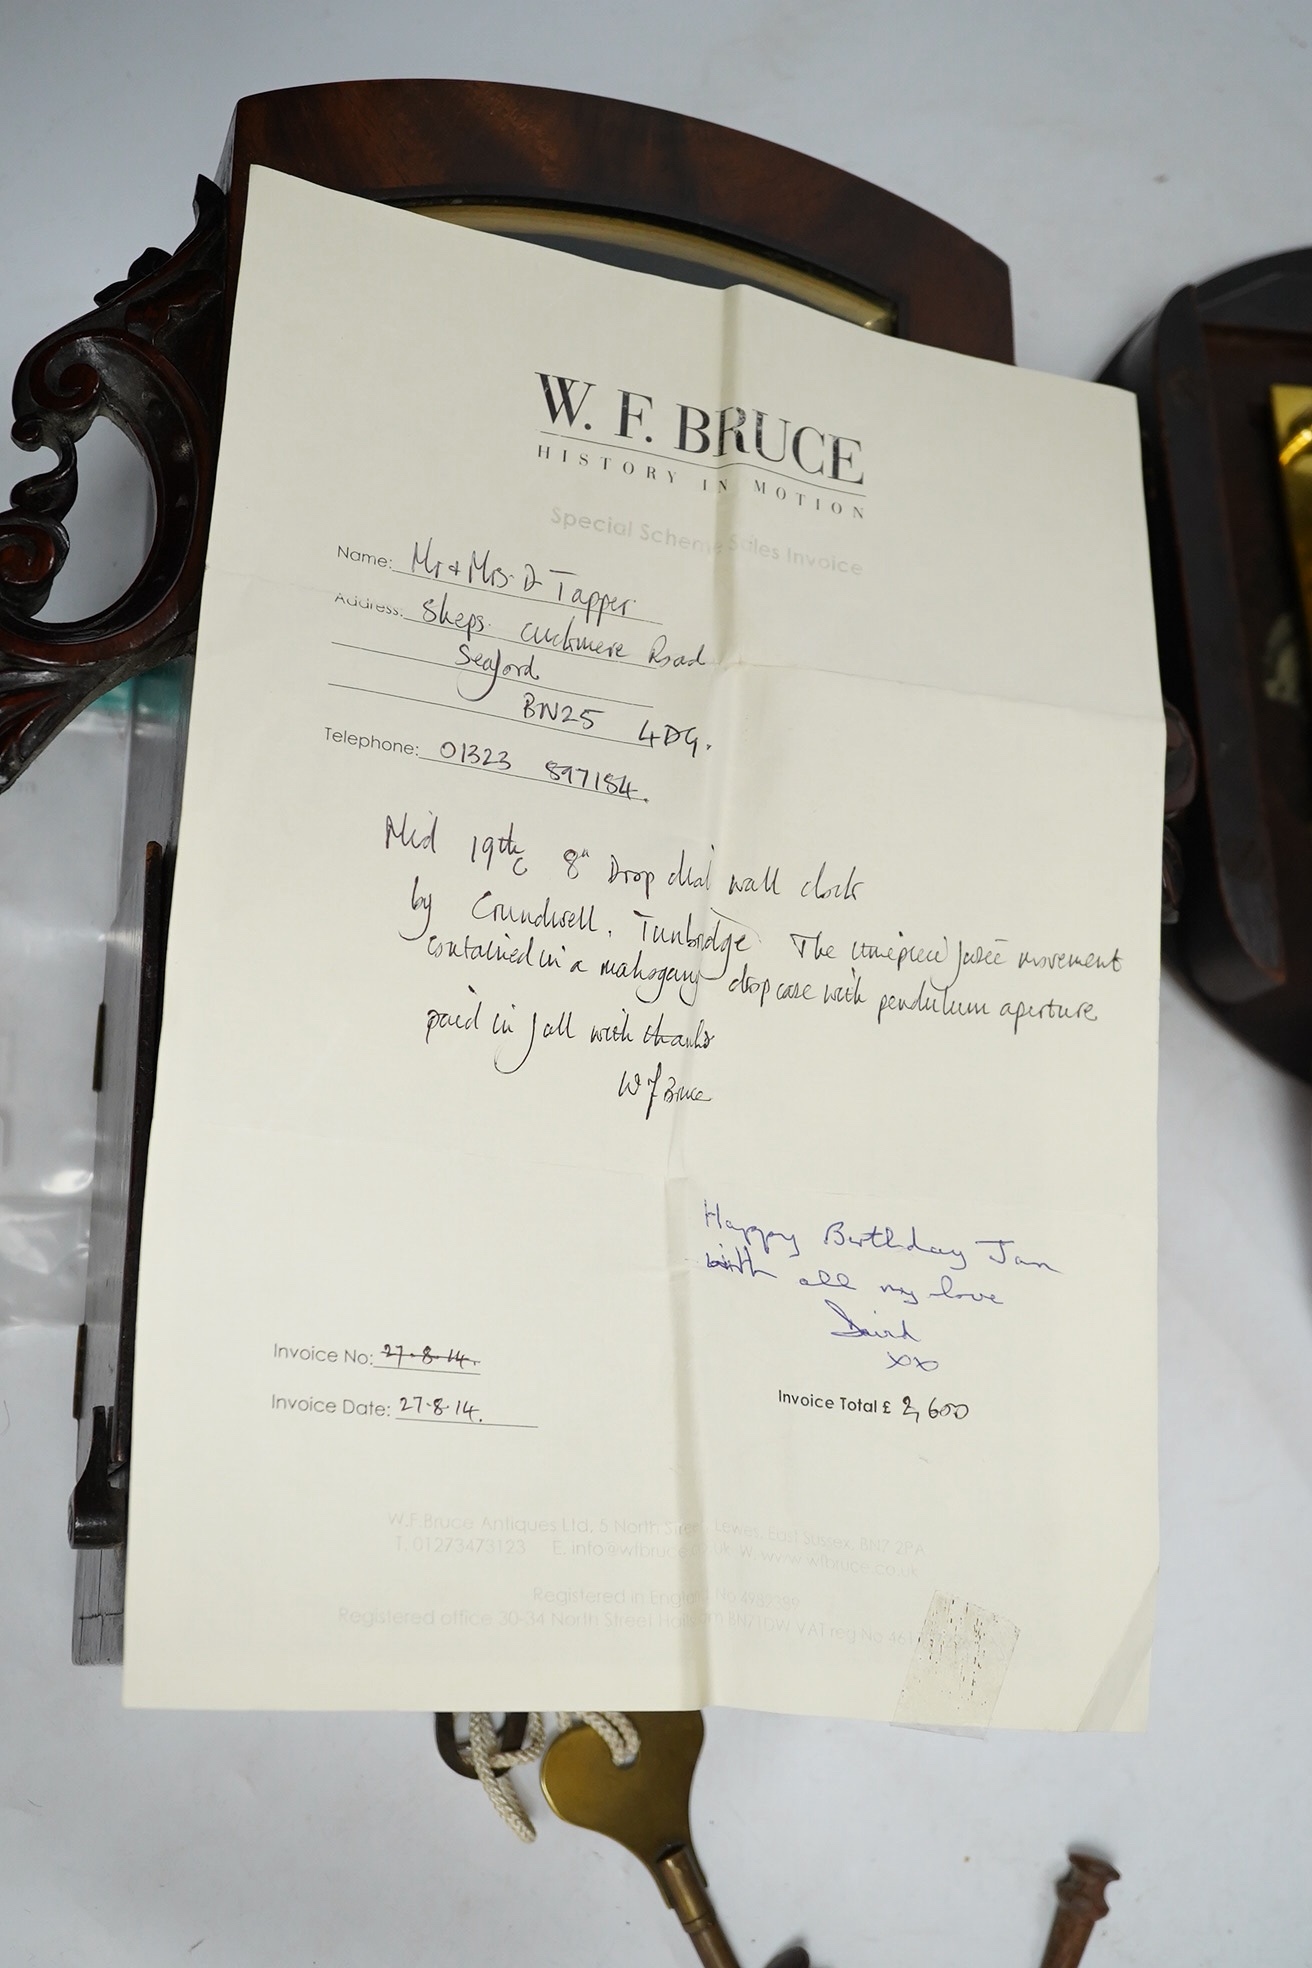 W. F. BRUCE
HISTORY IN MOTION
Special Scheme Sales Invoice
Name: Mr + Mrs. D Tapper
Address: Skeps. Cuckmere Road
Seaford
BN25 4DG.
Telephone: 01323 897184.
Mid 19thc 8" Drop dial wall clock
by Crundwell, Tunbridge. The timepiece fusee movement
contained in a mahogany drop case with pendulum aperture
paid in full with thanks
W F Bruce
Happy Birthday Jan
with all my love
David
xx
Invoice No: 27.8.14.
Invoice Date: 27.8.14.
Invoice Total £ 2,600
W.F.Bruce Antiques Ltd, 5 North Street, Lewes, East Sussex, BN7 2PA
T. 01273473123 E. info@wfbruce.co.uk W. www.wfbruce.co.uk
Registered in England No
Registered office 30-34 North Street Hailsham BN27 1DW VAT reg No